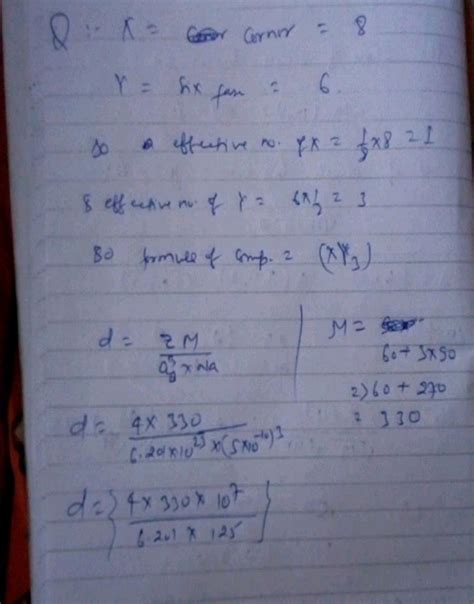 Q :- X = corner = 8
Y = six face = 6.
so effective no. of X = 1/8 x 8 = 1
& effective no. of Y = 6x1/2 = 3
so formula of comp. = (XY3)
d = ZM / a^3 x Na
M =
60 + 3x90
=> 60 + 270
= 330
d = 4 x 330 / 6.201x10^23 x (5x10^-10)^3
d = { 4 x 330 x 10^7 / 6.201 x 125 }